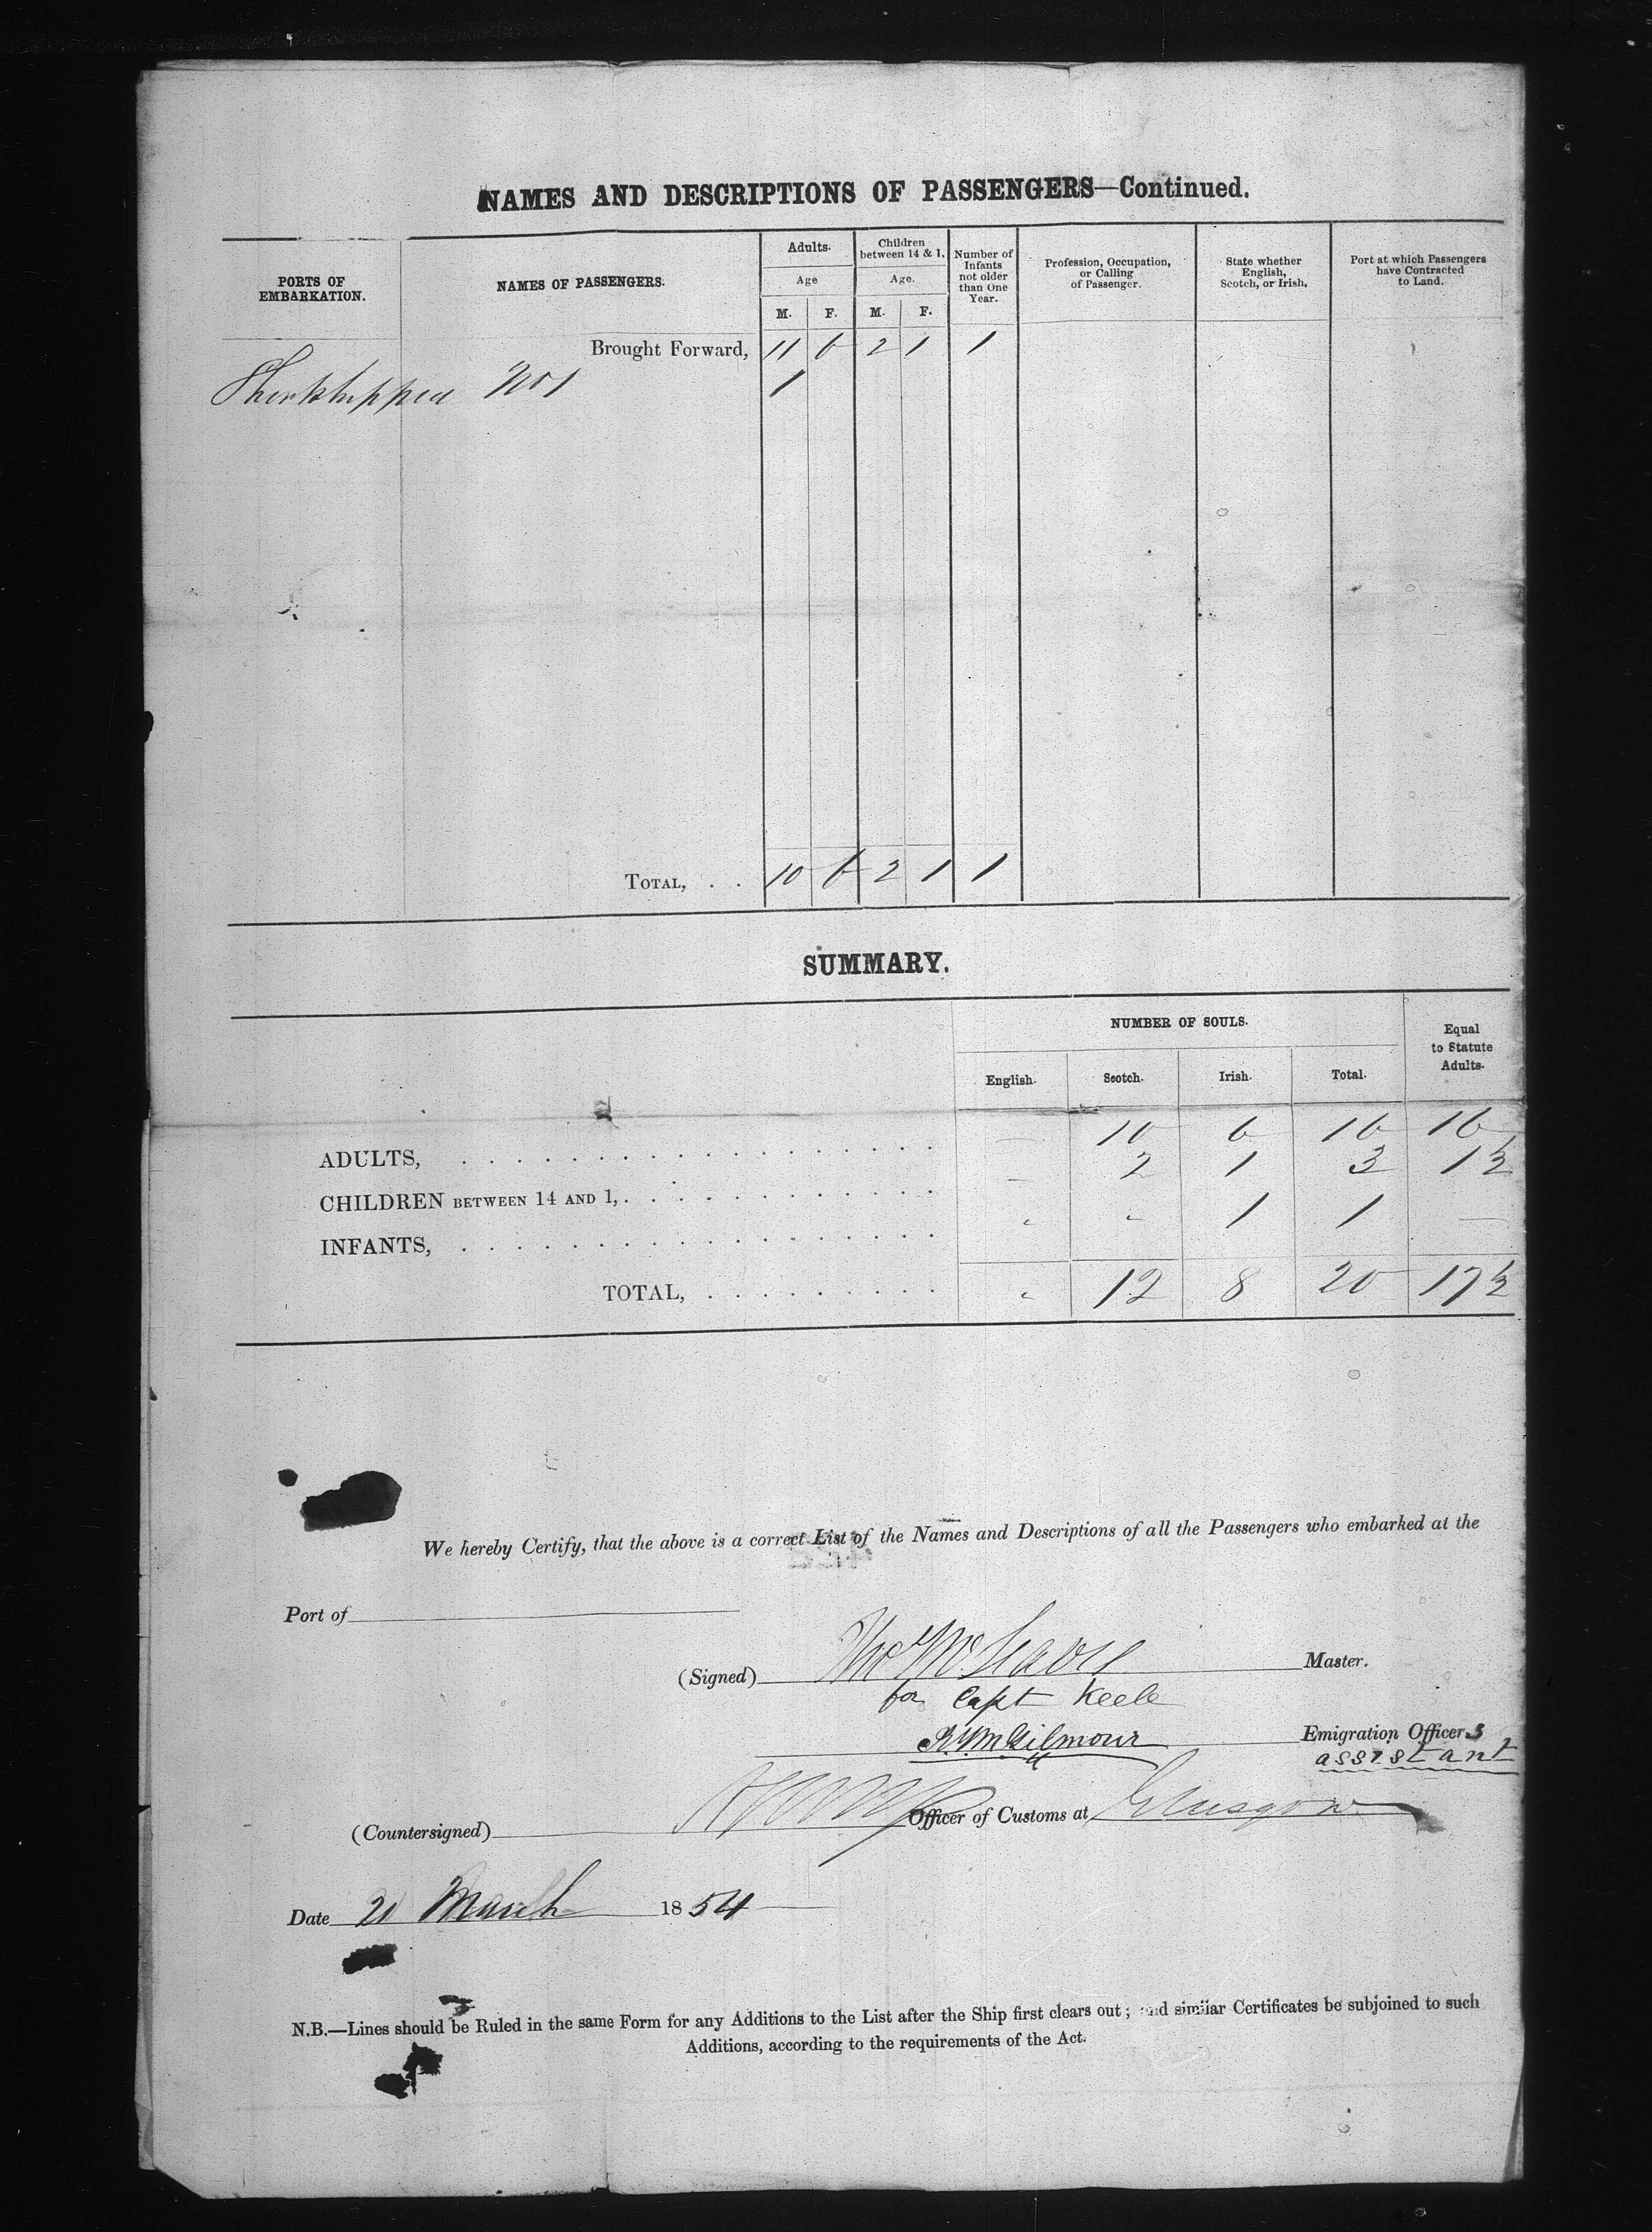 NAMES AND DESCRIPTIONS OF PASSENGERS—Continued.
PORTS OF EMBARKATION. NAMES OF PASSENGERS. Adults. Age M. F. Children between 14 & 1. Age. M. F. Number of Infants not older than One Year. Profession, Occupation, or Calling of Passenger. State whether English, Scotch, or Irish. Port at which Passengers have Contracted to Land.
Brought Forward, 11 6 2 1 1
No 1 1
TOTAL, . . 10 6 2 1 1
SUMMARY.
NUMBER OF SOULS. Equal to Statute Adults.
English. Scotch. Irish. Total.
ADULTS, — 10 6 16 16
CHILDREN BETWEEN 14 AND 1, — 2 1 3 1½
INFANTS, " " 1 1 —
TOTAL, " 12 8 20 17½
We hereby Certify, that the above is a correct List of the Names and Descriptions of all the Passengers who embarked at the
Port of
(Signed) Master.
for Capt Keele
Gilmour Emigration Officers
assistant
(Countersigned) Officer of Customs at Glasgow
Date 21 March 1854
N.B.—Lines should be Ruled in the same Form for any Additions to the List after the Ship first clears out; and similar Certificates be subjoined to such
Additions, according to the requirements of the Act.